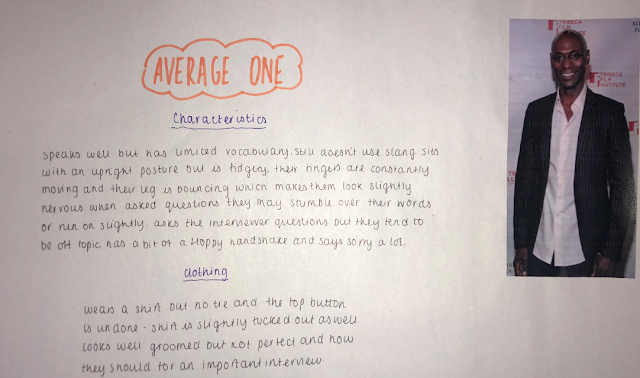 AVERAGE ONE
Characteristics
speaks well but has limited vocabulary. Still doesn't use slang sits
with an upright posture but is fidgety, their fingers are constantly
moving and their leg is bouncing which makes them look slightly
nervous. when asked questions they may stumble over their words
or run on slightly. asks the interviewer questions but they tend to
be off topic has a bit of a floppy handshake and says sorry a lot.
clothing
wears a shirt but no tie and the top button
is undone - shirt is slightly tucked out aswell
looks well groomed but not perfect and how
they should for an important interview.
TRIBECA
FILM
INSTITUTE
TRIBECA
FILM
INSTITUTE